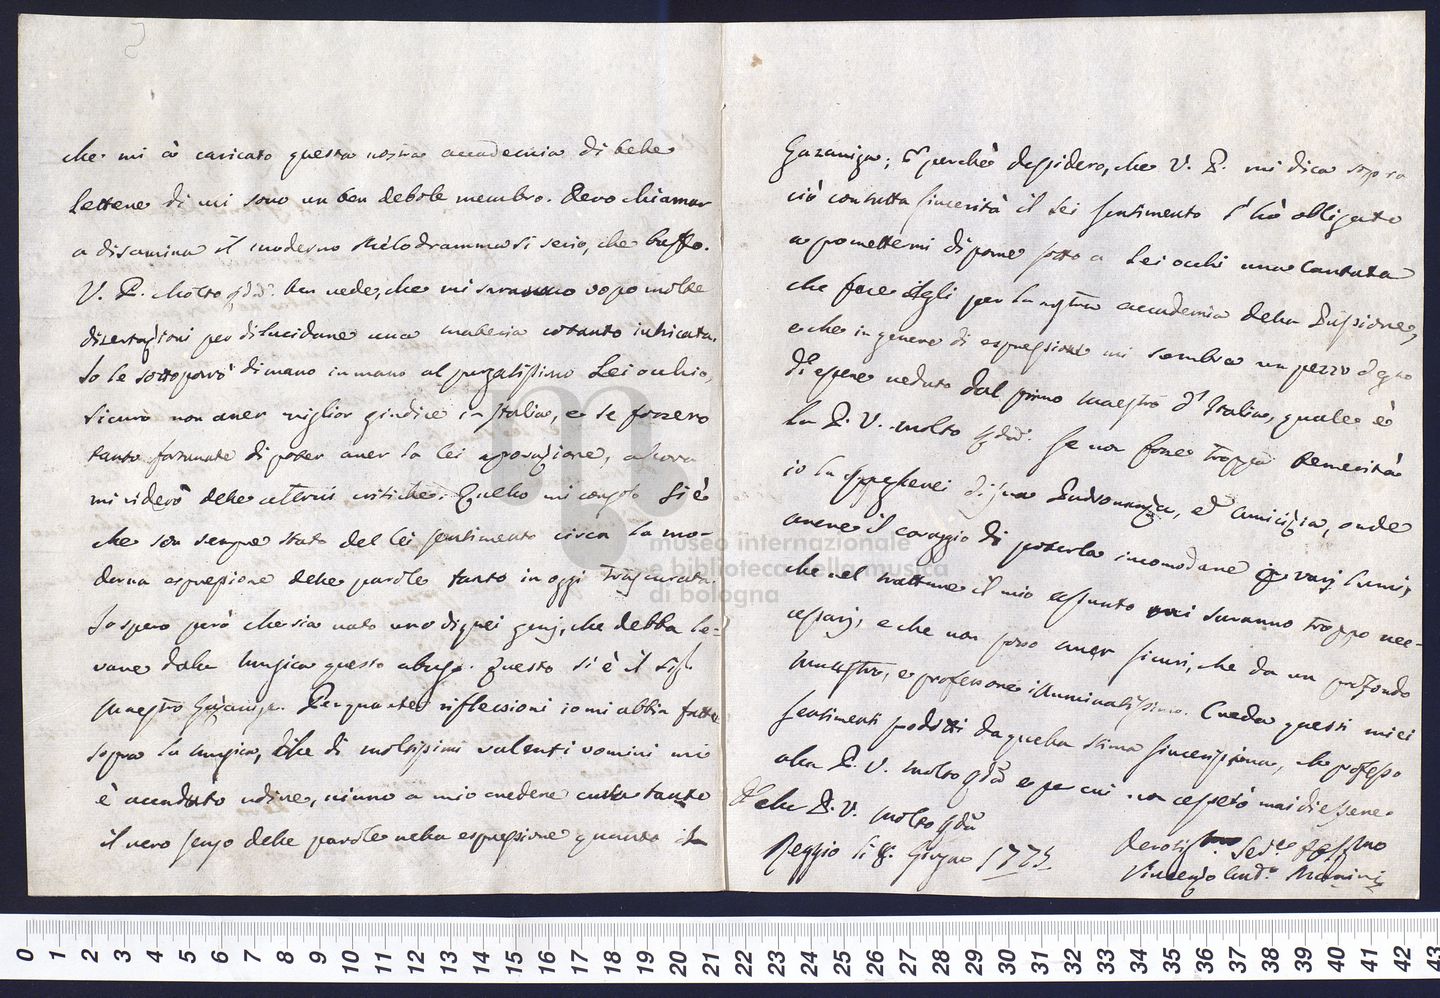 che mi à caricato questa nostra accademia di belle
lettere di cui sono un ben debole membro. Devo chiamar
a disamina il moderno Melodramma sì serio, che buffo.
V. P. Molto ben vede, che mi saranno d'uopo molte
dissertazioni per dilucidare una materia cotanto intricata.
Io le sottoporrò di mano in mano al purgatissimo Lei occhio,
sicuro non aver miglior giudice in Italia, e se fossero
tanto fortunate di poter aver la lei aprovazione, allora
mi riderò delle altrui critiche. Quello mi consola si è
che son sempre stato del lei sentimento circa la mo-
derna espressione delle parole tanto in oggi trascurata.
Io spero però che sia nato uno di quei genj, che debba le-
vare dalla Musica questo abuso. Questo si è il Sig.
Maestro Gazaniga. Per quante riflessioni io mi abbia fatte
sopra la Musica, che di moltissimi valenti uomini mi
è accaduto udire, niuno a mio credere cura tanto
il vero senso delle parole nella espressione quanto il
Gazaniga; e perchè dessidero, che V. P. mi dica sopra
ciò con tutta sincerità il Lei sentimento l'hò obligato
a prometermi di porre sotto a Lei occhi una Cantata
che fece Egli per la nostra accademia della Passione,
e che in genere di espressione mi sembra un pezzo degno
di essere veduto dal primo Maestro d'Italia, quale è
la P. V. molto Se non fosse troppa temerità
io la pregherei di sua Padronanza, ed amicizia, onde
avere il coraggio di poterla incomodare per varj lumi,
che nel trattare il mio assunto mi saranno troppo nec-
cessarj, e che non posso aver sicuri, che da un profondo
Maestro, e professore illuminatissimo. Creda questi miei
sentimenti prodotti da quella stima sincerissima, che professo
alla P. V. Molto e per cui non cesserò mai di essere
Della P. V. Molto
Reggio li 8. Giugno 1773 Devotis.mo
Vincenzo Manini